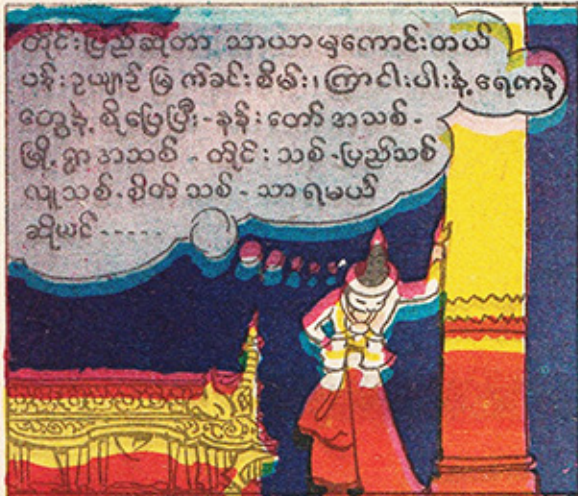 တိုင်းပြည်ဆိုတာ သာယာမှကောင်းတယ်
ပန်းဥယျာဉ် မြက်ခင်းစိမ်း၊ ကြာငါးပါးနဲ့ ရေကန်
တွေနဲ့ စိုပြေပြီး - နန်းတော် အသစ် -
မြို့ရွာ အသစ် - တိုင်းသစ် - ပြည်သစ်
လူသစ် - စိတ်သစ် - သာရမယ်
ဆိုယင် -----